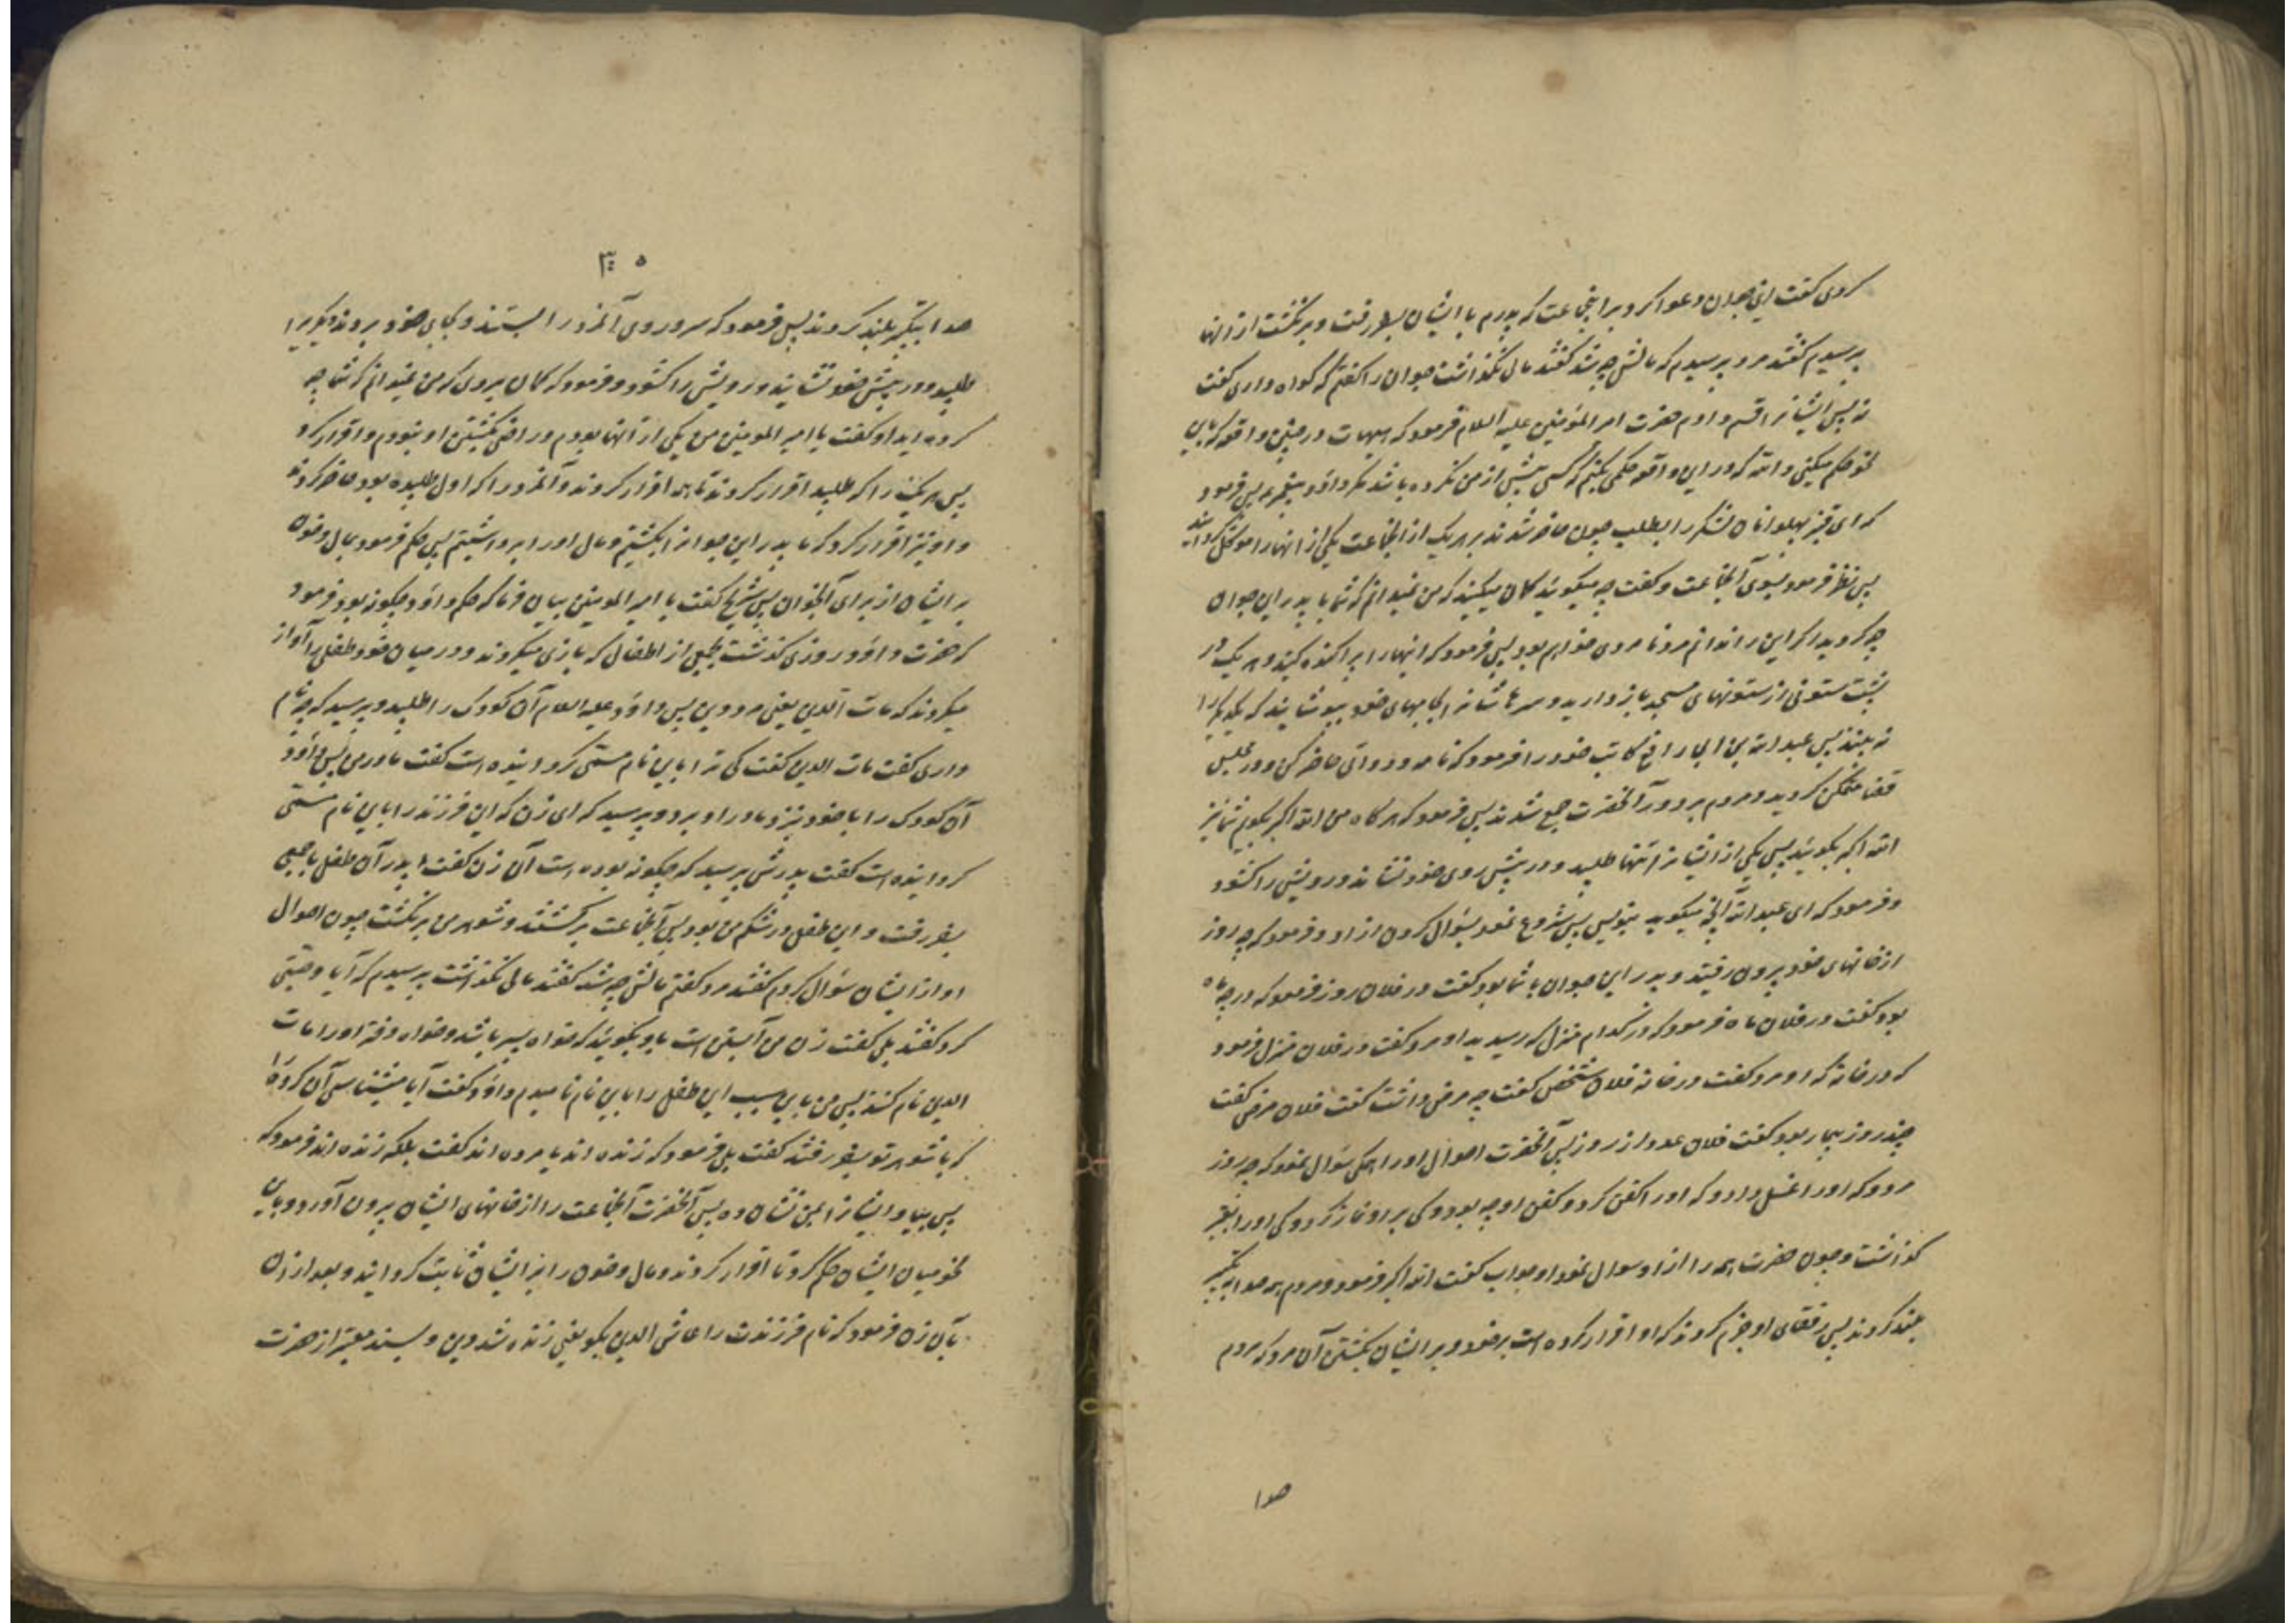 کردی گفت این جوان دعوا کرد بر این جماعت که پدرم با ایشان بسفر رفت و بر نگشت از آنها
پرسیدم گفتند مرد پرسیدم که مالش چه شد گفتند مالی نگذاشت جوان را گفتم که گواه داری گفت
نه پس ایشانرا قسم دادم حضرت امیر المؤمنین علیه السلام فرمود که هیهات در چنین واقعه باین
نحو حکم میکنی والله که در این واقعه حکمی بکنم که کسی پیش از من نکرده باشد مگر داود پیغمبر پس فرمود
که ای قنبر پهلوانان لشکر را بطلب چون حاضر شدند بر هر یک از آنجماعت یکی از آنها را موکل گردانید
پس نظر فرمود بسوی آنجماعت و گفت چه میگوئید گمان میکنید که من نمیدانم که شما با پدر این جوان
چه کردید اگر این را ندانم مرد نادانی خواهم بود پس فرمود که اینها را پراکنده کنید و هر یک در
پشت ستونی از ستونهای مسجد باز دارید و سرهاشانرا بجامهای خود بپوشانید که یکدیگر را
نه بینند پس عبد الله بن ابی رافع کاتب خود را فرمود که نامه و دواتی حاضر کن و در مجلس
قضا متمکن گردید و مردم بر دور آنحضرت جمع شدند پس فرمود که هر گاه من الله اکبر بگویم شما نیز
الله اکبر بگوئید پس یکی از ایشانرا تنها طلبید و در پیش روی خود نشاند و رویش را گشود
و فرمود که ای عبد الله آنچه میگوید بنویس پس شروع نمود بسؤال کردن از او و فرمود که چه روز
از خانهای خود بیرون رفتید و پدر این جوان با شما بود گفت در فلان روز فرمود که در چه ماه
بود گفت در فلان ماه فرمود که در کدام منزل که رسیدید او مرد گفت در فلان منزل فرمود
که در خانه که او مرد گفت در خانه فلان شخص گفت چه مرض داشت گفت فلان مرض گفت
چند روز بیمار بود گفت فلان عدد از روز پس آنحضرت احوال او را همگی سؤال نمود که چه روز
مرد و که او را غسل داد و که او را کفن کرد و کفن او چه بود و کی بر او نماز کرد و کی او را بقبر
گذاشت و چون حضرت همه را از او سوال نمود او جواب گفت الله اکبر فرمود و مردم همه صدا بتکبیر
بلند کردند پس رفقای او جزم کردند که او اقرار کرده است بر خود و بر ایشان بکشتن آن مرد که مردم
صدا
۳۰۵
صدا بتکبیر بلند کردند پس فرمود که سر و روی آنمرد را بستند و بجای خود بردند و دیگریرا
طلبید و در پیش خود نشانید و رویش را گشود و فرمود که گمان میبردی که من نمیدانم که شما چه
کرده اید او گفت یا امیر المومنین من یکی از آنها بودم و راضی بکشتن او نبودم و اقرار کرد
پس هر یک را که طلبید اقرار کردند تا همه اقرار کردند و آنمرد را که اول طلبیده بود حاضر کردند
و او نیز اقرار کرد که ما پدر این جوانرا بکشتیم و مال او را برداشتیم پس حکم فرمود بمال و خون
بر ایشان از برای آنجوان پس شریح گفت یا امیر المومنین بیان فرما که حکم داود چگونه بود فرمود
که حضرت داود روزی گذشت بجمعی از اطفال که بازی میکردند و در میان خود طفلی را آواز
میکردند که مات الدین یعنی مرد دین پس داود علیه السلام آن کودک را طلبید و پرسید که چه نام
داری گفت مات الدین گفت کی ترا باین نام مسمی گردانیده است گفت مادر من پس داود
آن کودک را با خود بنزد مادر او برد و پرسید که ای زن که این فرزند را باین نام مسمی
گردانیده است گفت پدرش پرسید که چگونه بوده است آن زن گفت پدر آن طفل با جمعی
بسفر رفت و این طفل در شکم من بود پس آنجماعت برگشتند و شوهر من بر نگشت چون احوال
او از ایشان سؤال کردم گفتند مرد گفتم مالش چه شد گفتند مالی نگذاشت پرسیدم که آیا وصیتی
کرد گفتند بلی گفت زن من آبستن است باو بگوئید که خواه پسر باشد و خواه دختر او را مات
الدین نام کند پس من باین سبب این طفل را باین نام نامیدم داود گفت آیا میشناسی آن گروه را
که با شوهر تو بسفر رفتند گفت بلی فرمود که زنده اند یا مرده اند گفت بلکه زنده اند فرمود که
پس بیا و ایشانرا بمن نشان ده پس آنحضرت آنجماعت را از خانهای ایشان بیرون آورد و باین
نحو میان ایشان حکم کرد تا اقرار کردند و مال و خون را بر ایشان ثابت گردانید و بعد از آن
بآن زن فرمود که نام فرزندت را عاش الدین بگو یعنی زنده شد دین و بسند معتبر از حضرت